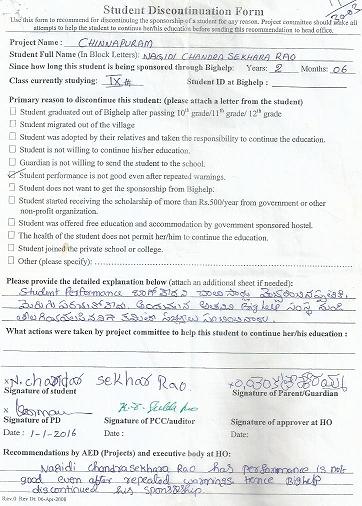 Student Discontinuation Form
Use this form to recommend for discontinuing the sponsorship of a student for any reason. Project committee should make all
attempts to help the student to continue her/his education before sending this recommendation to head office.
Project Name : CHINNAPURAM
Student Full Name (In Block Letters): NAGIDI CHANDRA SEKHARA RAO
Since how long this student is being sponsored through Bighelp: Years: 2 Months: 06
Class currently studying: IX Student ID at Bighelp :
Primary reason to discontinue this student: (please attach a letter from the student)
Student graduated out of Bighelp after passing 10th grade/11th grade/ 12th grade
Student migrated out of the village
Student was adopted by their relatives and taken the responsibility to continue the education.
Student is not willing to continue his/her education.
Guardian is not willing to send the student to the school.
Student performance is not good even after repeated warnings.
Student does not want to get the sponsorship from Bighelp.
Student started receiving the scholarship of more than Rs.500/year from government or other
non-profit organization.
Student was offered free education and accommodation by government sponsored hostel.
The health of the student does not permit her/him to continue the education.
Student joined the private school or college.
Other (please specify):
Please provide the detailed explanation below (attach an additional sheet if needed):
Student Performance
Bighelp
What actions were taken by project committee to help this student to continue her/his education :
x N. chandar sekhar Rao
Signature of student Signature of Parent/Guardian
x
Signature of PD Signature of PCC/auditor Signature of approver at HO
Date : 1-1-2016 Date : Date :
Recommendations by AED (Projects) and executive body at HO:
Nagidi chandra sekhara Rao has performance is not
good even after repeated warnings hence Bighelp
discontinued his sponsorship.
Rev.0 Rev Dt. 06-Apr-2008